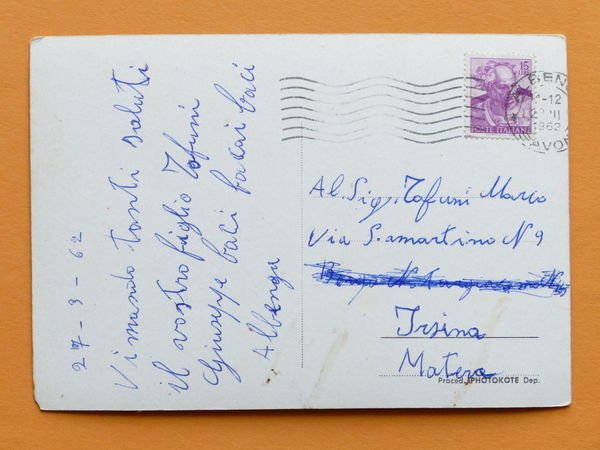 27-3-62
Vi mando tanti saluti
il vostro figlio Tofuni
Giuseppe baci bacai baci
Albenga
15
POSTE ITALIANE
BENG
-12
1962
AVO
Al. Sig. Tofuni Marco
Via S.amartino N 9
Irsina
Matera
Proced. PHOTOKOTE Dep.